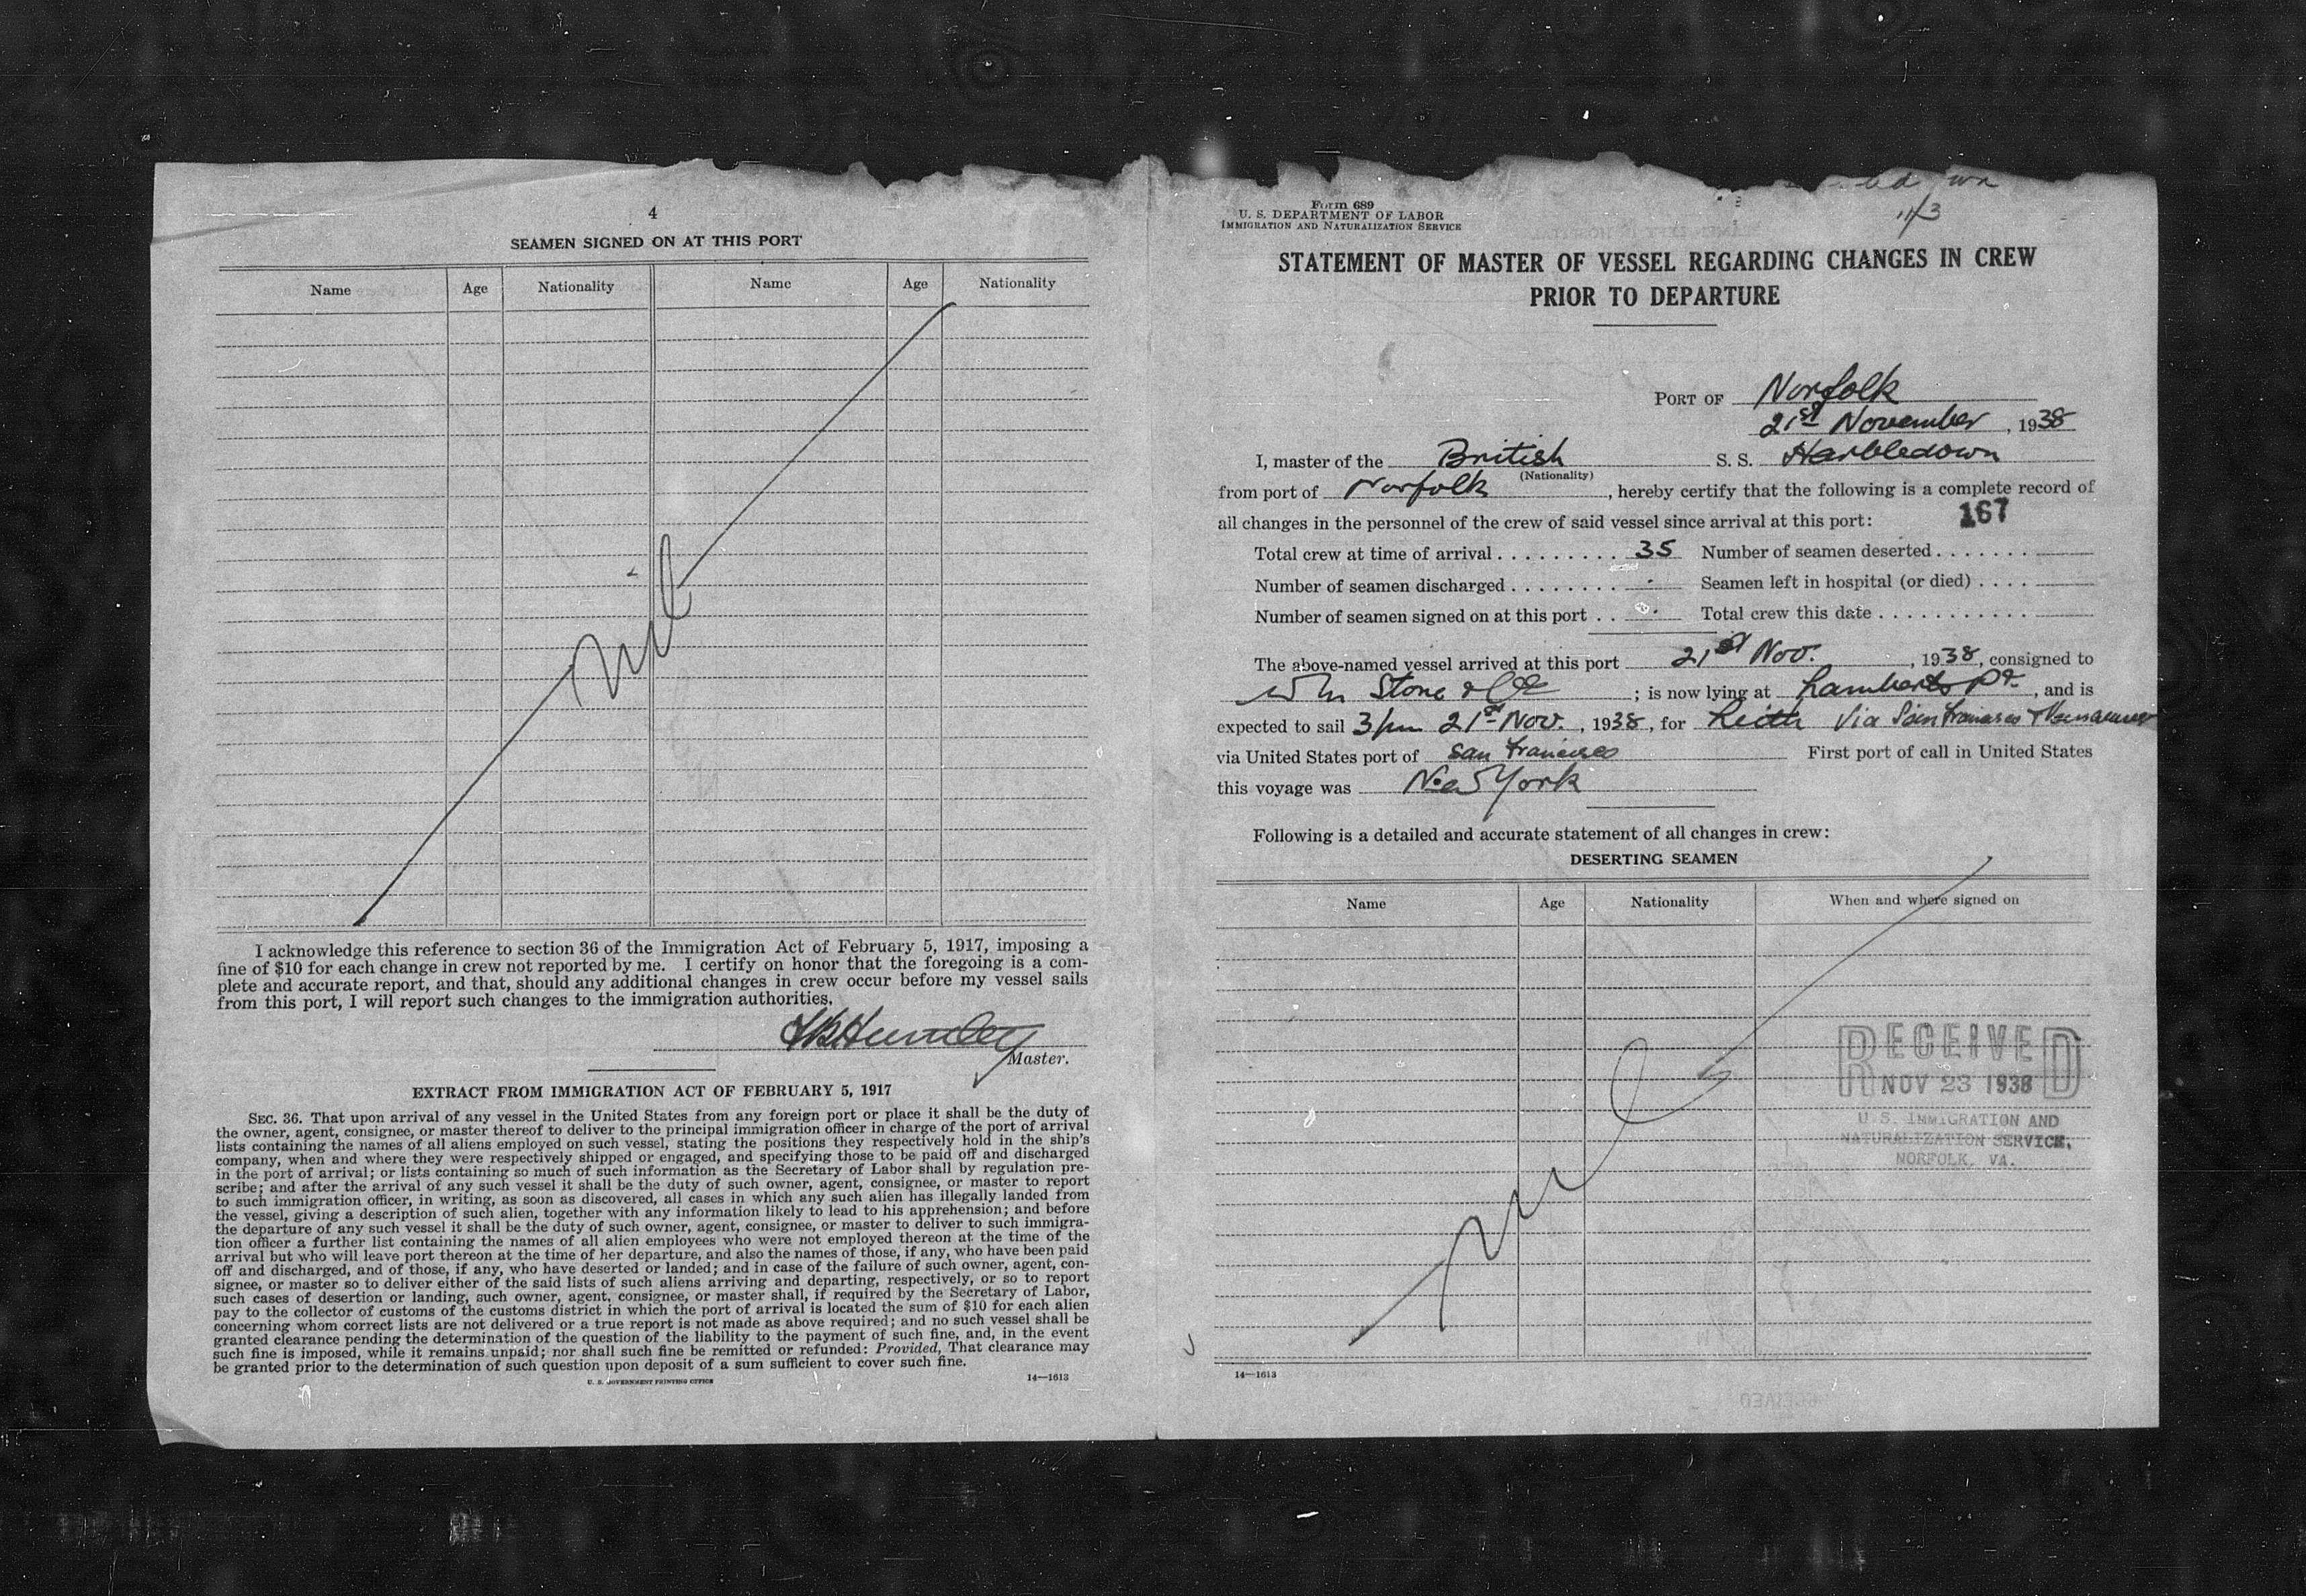 4
SEAMEN SIGNED ON AT THIS PORT
Name Age Nationality Name Age Nationality
nil
I acknowledge this reference to section 36 of the Immigration Act of February 5, 1917, imposing a
fine of $10 for each change in crew not reported by me. I certify on honor that the foregoing is a com-
plete and accurate report, and that, should any additional changes in crew occur before my vessel sails
from this port, I will report such changes to the immigration authorities.
Master.
EXTRACT FROM IMMIGRATION ACT OF FEBRUARY 5, 1917
SEC. 36. That upon arrival of any vessel in the United States from any foreign port or place it shall be the duty of
the owner, agent, consignee, or master thereof to deliver to the principal immigration officer in charge of the port of arrival
lists containing the names of all aliens employed on such vessel, stating the positions they respectively hold in the ship's
company, when and where they were respectively shipped or engaged, and specifying those to be paid off and discharged
in the port of arrival; or lists containing so much of such information as the Secretary of Labor shall by regulation pre-
scribe; and after the arrival of any such vessel it shall be the duty of such owner, agent, consignee, or master to report
to such immigration officer, in writing, as soon as discovered, all cases in which any such alien has illegally landed from
the vessel, giving a description of such alien, together with any information likely to lead to his apprehension; and before
the departure of any such vessel it shall be the duty of such owner, agent, consignee, or master to deliver to such immigra-
tion officer a further list containing the names of all alien employees who were not employed thereon at the time of the
arrival but who will leave port thereon at the time of her departure, and also the names of those, if any, who have been paid
off and discharged, and of those, if any, who have deserted or landed; and in case of the failure of such owner, agent, con-
signee, or master so to deliver either of the said lists of such aliens arriving and departing, respectively, or so to report
such cases of desertion or landing, such owner, agent, consignee, or master shall, if required by the Secretary of Labor,
pay to the collector of customs of the customs district in which the port of arrival is located the sum of $10 for each alien
concerning whom correct lists are not delivered or a true report is not made as above required; and no such vessel shall be
granted clearance pending the determination of the question of the liability to the payment of such fine, and, in the event
such fine is imposed, while it remains unpaid; nor shall such fine be remitted or refunded: Provided, That clearance may
be granted prior to the determination of such question upon deposit of a sum sufficient to cover such fine.
U. S. GOVERNMENT PRINTING OFFICE 14—1613
Form 689
U. S. DEPARTMENT OF LABOR
IMMIGRATION AND NATURALIZATION SERVICE
11/3
STATEMENT OF MASTER OF VESSEL REGARDING CHANGES IN CREW
PRIOR TO DEPARTURE
PORT OF Norfolk
21st November, 1938
I, master of the British S. S. Harbledown
(Nationality)
from port of Norfolk, hereby certify that the following is a complete record of
all changes in the personnel of the crew of said vessel since arrival at this port: 167
Total crew at time of arrival . . . . . . . . . 35 Number of seamen deserted . . . . . . .
Number of seamen discharged . . . . . . . . Seamen left in hospital (or died) . . . .
Number of seamen signed on at this port . . Total crew this date . . . . . . . . . . . .
The above-named vessel arrived at this port 21st Nov., 1938, consigned to
Wm Stone & Co; is now lying at Lamberts Pt., and is
expected to sail 3pm 21st Nov., 1938, for Leith Via San Francisco &
via United States port of San Francisco First port of call in United States
this voyage was New York
Following is a detailed and accurate statement of all changes in crew:
DESERTING SEAMEN
Name Age Nationality When and where signed on
nil
RECEIVED
NOV 23 1938
U. S. IMMIGRATION AND
NATURALIZATION SERVICE,
NORFOLK, VA.
14—1613